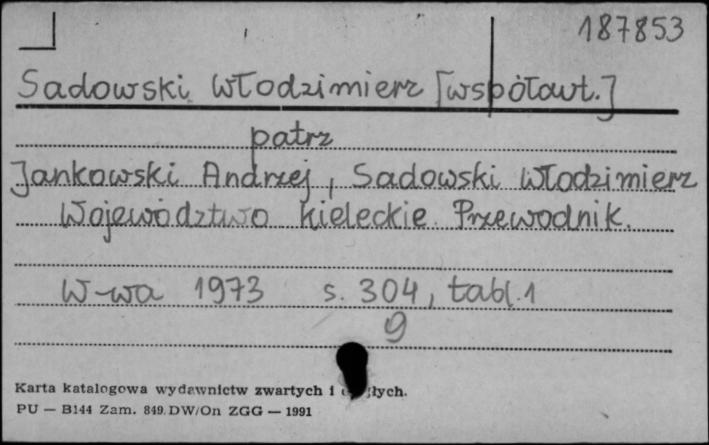 187853
Sadowski Włodzimierz [współaut.]
patrz
Jankowski Andrzej, Sadowski Włodzimierz
Województwo kieleckie. Przewodnik.
W-wa 1973 s. 304, tabl. 1
9
Karta katalogowa wydawnictw zwartych i
PU — B144 Zam. 849. DW/On ZGG — 1991